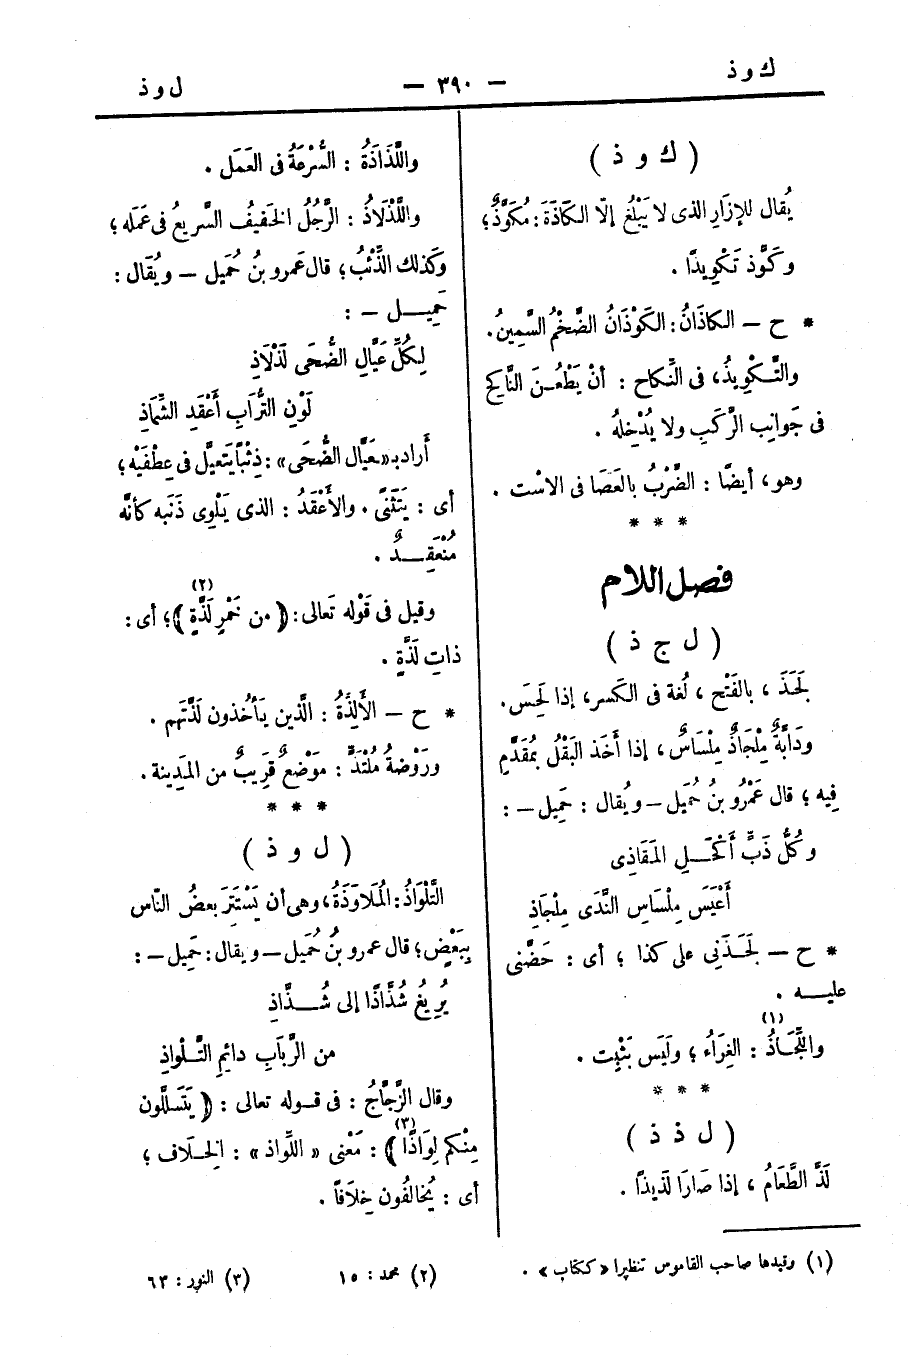 ك و ذ
— ٣٩٠ —
ل و ذ
( ك و ذ )
يُقال للإزَارِ الذى لا يَبْلُغ إلّا الكَاذَةَ : مُكَوَّذٌ ؛
وكَوَّذ تَكْوِيذًا .
* ح — الكاذَانُ : الكَوْذَانُ الضَّخْمُ السَّمِينُ .
والتَّـكْوِيذُ، فى النِّكاح : أنْ يَطْعُـنَ النَّاكِحُ
فى جَوانِب الرَّكَبِ ولا يُدْخِلهُ .
وهو، أيضًا : الضَّرْبُ بالعَصَا فى الاسْت .
* * *
فصل اللام
( ل ج ذ )
لَجَذَ ، بالفَتْح ، لُغة فى الكَسر، إذا لَحِسَ .
ودَابَّةٌ مِلْجَاذٌ مِلْسَاسٌ ، إذا أَخَذ البَقْلَ بمُقَدَّمِ
فِيه ؛ قال عَمْرُو بنُ حُمَيل — ويُقال : حَمِيل — :
وكُلُّ ذَبٍّ أَكْحَـلِ المَقَاذِى
أَعْيَسَ مِلْسَاسِ النَّدَى مِلْجَاذِ
* ح — لَجَـذَنِى على كذا ؛ أى : حَضَّنى
عليـه .
واللِّجَـاذُ (١) : الغِرَاءُ ؛ ولَيَس بَثْبِت .
* * *
( ل ذ ذ )
لَذَّ الطَّعَامُ ، إذا صَارَا لَذيذًا .
واللَّذَاذَةُ : السُّرْعَةُ فى العَمَل .
واللَّذْلاذُ : الرَّجُلُ الخَفِيفُ السَّريعُ فى عَمَله ؛
وكَذلك الذِّئْبُ ؛ قال عَمرو بنُ حُمَيل — ويُقَال :
حَمِيـــل — :
لِكُلِّ عَيَّالِ الضُّحَى لَذْلَاذِ
لَوْنِ التُّرَابِ أَعْقَدِ الشِّمَاذِ
أَراد بـ«ـعَيَّال الضُّحَى» : ذِئْبًا يَتَعيَّل فى عِطْفَيْه ؛
أى : يَتَثَنَّى . والأَعْقَدُ : الذى يَلْوِى ذَنَبه كأنَّه
مُنْعَقِـــدٌ .
وقيل فى قَوْله تَعالى : ﴿ مِن خَمْرٍ لَذَّةٍ ﴾ (٢) ؛ أى :
ذاتِ لَذَّةٍ .
* ح — الأَلِذَّةُ : الَّذين يَأخُذون لَذَّتَهم .
ورَوْضَةُ مُلْتَذٍّ : مَوْضعٌ قَرِيبٌ من المَدِينة .
* * *
( ل و ذ )
التِّلْوَاذُ : المُلَاوَذَةُ، وهى أن يَسْتَتِرَ بعضُ النّاس
بِبَعْضٍ ؛ قال عمرو بنُ حُمَيل — ويقال : حَمِيل — :
يُرِيغُ شُذَّاذًا إلى شُــذَّاذِ
من الرَّبَابِ دائِمِ التَّـلْواذِ
وقال الزَّجَّاجُ : فى قـوله تعالى : ﴿ يَتَسَلَّلون
مِنْكم لِوَاذًا ﴾ (٣) : مَعْنى « اللِّواذ » : الخِـلَاف ؛
أى : يُخالفُون خِلَافاً .
(١) وقيدها صاحب القاموس تنظيرا « ككتاب » .
(٢) محمد : ١٥
(٣) النور : ٦٣